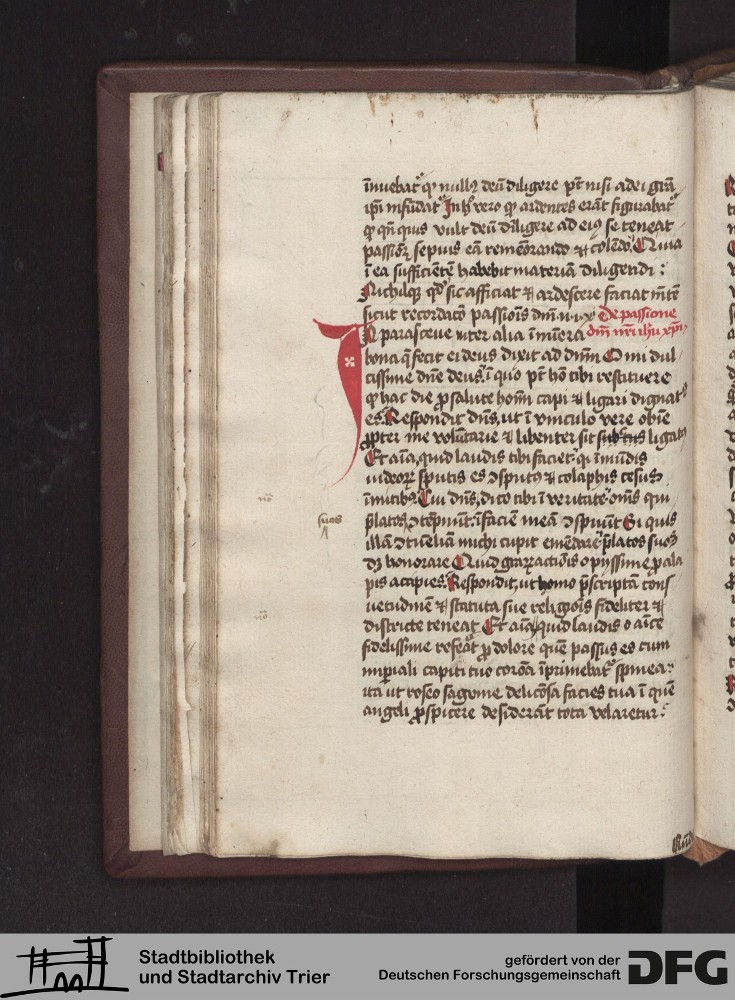 īnuebat᷒ qꝫ null᷒ deū diligere pt̄ nisi a dei grā
ip̄i infūdat᷒ In hͦ vero qꝫ ardentes erāt figurabat᷒
qꝫ qn̄ quis vult deū diligere ad ei᷒ se teneat
passiōꝫ sepius eā rememorando et colēdo Quia
ī ea sufficiētē habebit materiā diligendi :
Nichil qꝫ qd̓ sic afficiat et ardescere faciat mētē
sicut recordatō passiōis dm̄ De passione
In parasceue inter alia īmūera dn̄i nr̄i ihu xp̄i
bona q̄ fecit ei deus dixit ad dn̄m O mi dul
cissime dn̄e deus, ī quo pt̄ hō tibi restituere
qꝫ hac die ꝓ salute hoīm capi et ligari dignat᷒
es Respondit dn̄s, ut ī vinculo vere obīe
ꝓpter me volūtarie et libenter sit ligat᷒
Et aīa, quid laudis tibi faciet qi īmūdis
iudeoꝝ sputis es ꝯsput᷒ et colaphis cesus
Cui dn̄s, dico tibi ī veritate om̄s qui
p̄latos ꝯtēpnūt ī faciē meā ꝯspuūt Si quis
suos
illā ꝯtūeliā michi cupit emēdare p̄latos suos
dꝫ honorare Quid graꝝ actiōis o pyssime ꝓ ala
pis accipies Respondit, ut homo p̄scriptā cons
uetudinē et statuta sue religiōis fideliter et
districte teneat Et aīa, quid laudis o aīce
fidelissime refeāt ꝓ dolore quē passus es cum
imp̄iali capiti tuo corōa īprimebat᷒ spinea :
ita ut roseo sāgwine delicōsa facies tua ī quē
angeli ꝓspicere desiderāt tota velaretur :
Stadtbibliothek
und Stadtarchiv Trier
gefördert von der
Deutschen Forschungsgemeinschaft
DFG